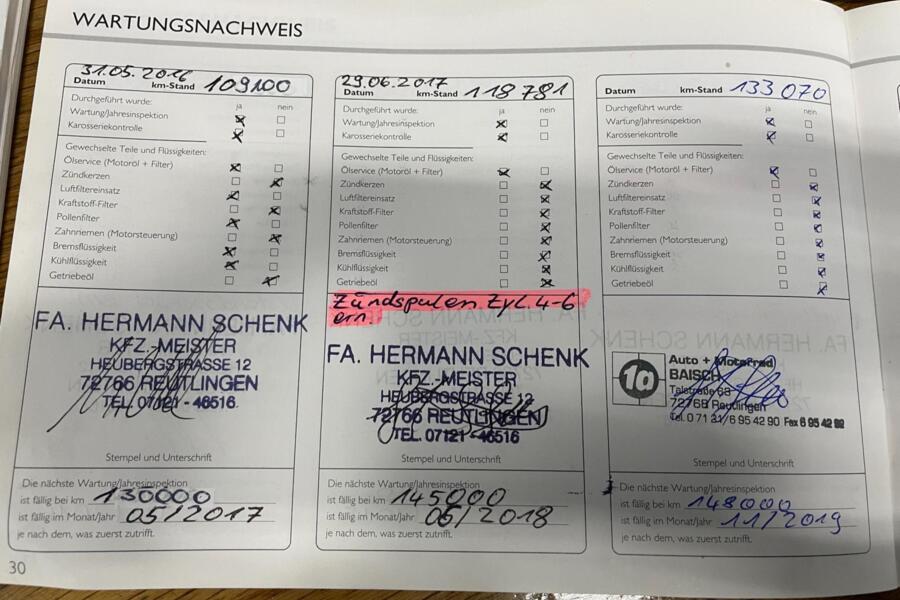 WARTUNGSNACHWEIS
31.05.2016 109100
Datum km-Stand
Durchgeführt wurde: ja nein
Wartung/Jahresinspektion
Karosseriekontrolle
Gewechselte Teile und Flüssigkeiten:
Ölservice (Motoröl + Filter)
Zündkerzen
Luftfiltereinsatz
Kraftstoff-Filter
Pollenfilter
Zahnriemen (Motorsteuerung)
Bremsflüssigkeit
Kühlflüssigkeit
Getriebeöl
FA. HERMANN SCHENK
KFZ.-MEISTER
HEUBERGSTRASSE 12
72766 REUTLINGEN
TEL. 07121 - 46516
Stempel und Unterschrift
Die nächste Wartung/Jahresinspektion
ist fällig bei km 130000
ist fällig im Monat/Jahr 05/2017
je nach dem, was zuerst zutrifft.
29.06.2017 118781
Datum km-Stand
Durchgeführt wurde: ja nein
Wartung/Jahresinspektion
Karosseriekontrolle
Gewechselte Teile und Flüssigkeiten:
Ölservice (Motoröl + Filter)
Zündkerzen
Luftfiltereinsatz
Kraftstoff-Filter
Pollenfilter
Zahnriemen (Motorsteuerung)
Bremsflüssigkeit
Kühlflüssigkeit
Getriebeöl
Zündspulen Zyl. 4-6
ern.
FA. HERMANN SCHENK
KFZ.-MEISTER
HEUBERGSTRASSE 12
72766 REUTLINGEN
TEL. 07121 - 46516
Stempel und Unterschrift
Die nächste Wartung/Jahresinspektion
ist fällig bei km 145000
ist fällig im Monat/Jahr 06/2018
je nach dem, was zuerst zutrifft.
Datum km-Stand 133070
Durchgeführt wurde: ja nein
Wartung/Jahresinspektion
Karosseriekontrolle
Gewechselte Teile und Flüssigkeiten:
Ölservice (Motoröl + Filter)
Zündkerzen
Luftfiltereinsatz
Kraftstoff-Filter
Pollenfilter
Zahnriemen (Motorsteuerung)
Bremsflüssigkeit
Kühlflüssigkeit
Getriebeöl
1a
Auto + Motorrad
BAISCH
Talstraße 68
72768 Reutlingen
Tel. 0 71 21/6 95 42 90 Fax 6 95 42 92
Stempel und Unterschrift
Die nächste Wartung/Jahresinspektion
ist fällig bei km 148000
ist fällig im Monat/Jahr 11/2019
je nach dem, was zuerst zutrifft.
30